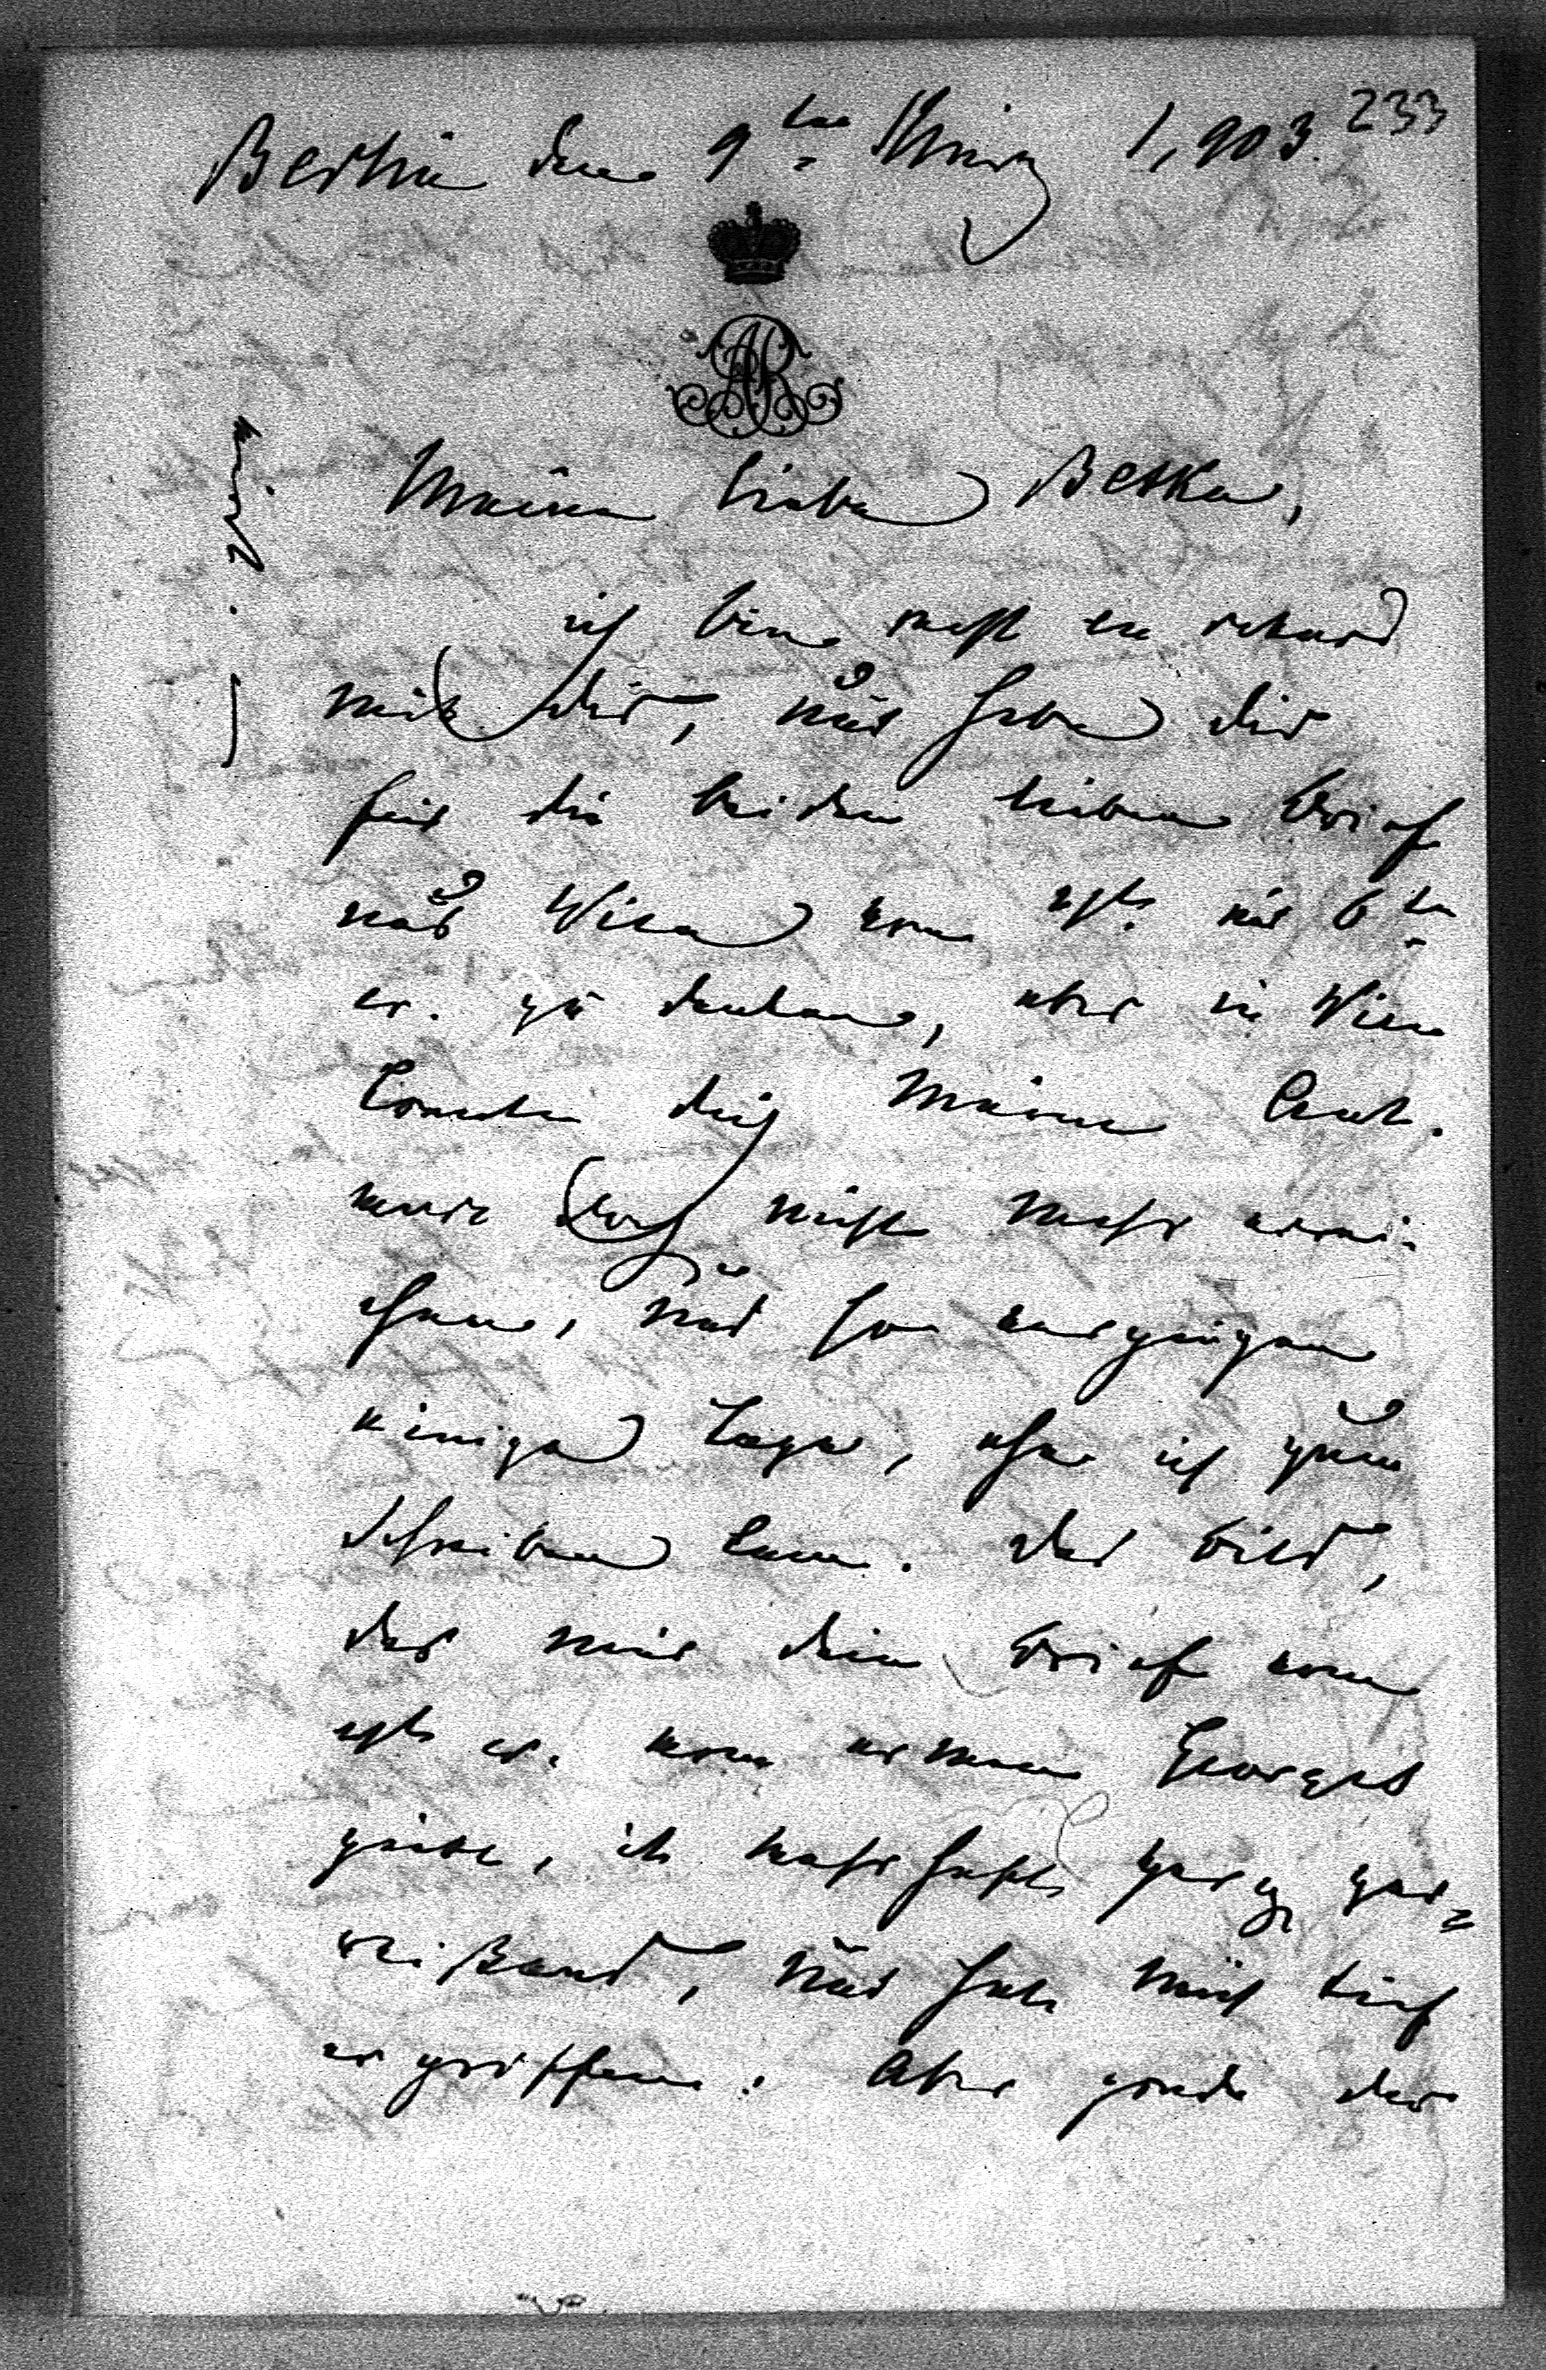 233
Berlin den 9ten März 1,903.
Meine liebe Betka,
ich bin recht en retard
mit dir, und habe dir
für die beiden lieben Briefe
nach Wien vom und 6ten
cr. zu danken, aber in Wien
konnte dich meine Ant-
wort doch nicht mehr errei-
chen, und so vergingen
einige Tage, ehe ich zum
Schreiben kam. Das Bild,
das mir dein Brief vom
cr. vom armen Georges
giebt, ist wahrhaft herz zer=
reißend, und hat mich tief
ergriffen. Aber grade der